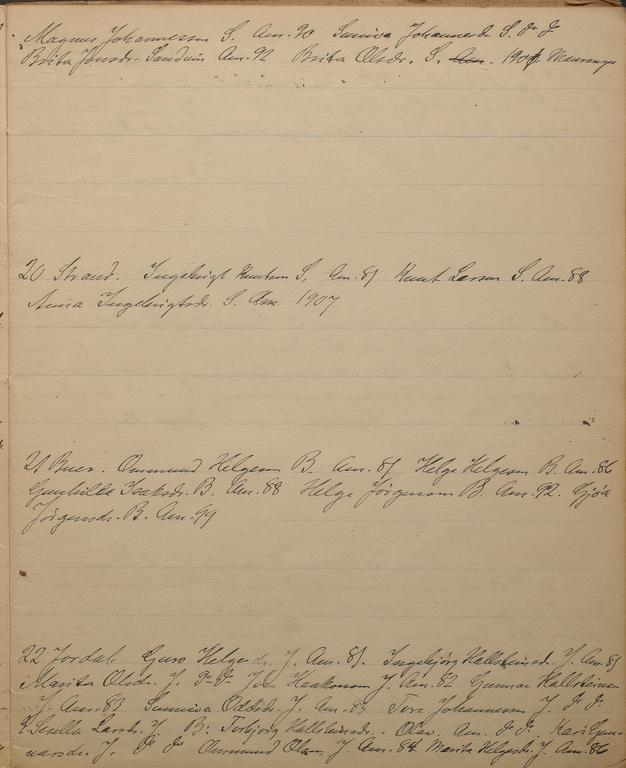 Magnus Johannessen S. Am. 90 Sunniva Johannesdr S. do do
Brita Jonsdr. Sandvin Am. 92 Brita Olsdr. S. Am. 1904 Mauranger
20 Strand. Ingebrigt Knutsen S. Am. 81 Knut Larsen S. Am. 88
Anna Ingebrigtsdr. S. Am 1907
21 Buer. Ommund Helgesen B. Am. 81 Helge Helgesen B. Am. 86
Gunhilda Isaksdr. B. Am. 88 Helge Jörgensen B. Am. 92. Gjöa
Jörgensdr. B. Am. 99
22 Jordal. Guro Helgesdr. J. Am. 81. Ingebjörg Hallsteinsdr. J. Am 81
Marita Olsdr. J. do do Haakonsen J. Am. 82 Gunnar Hallsteinsen
J. Am. 83 Sunniva Oddsdr. J. Am. Tore Johannessen J. do do
Sesella Larsdr. J. Torbjörg Hallsteinsdr. Olav. Am. do do Kari Gun-
narsdr. J. do do Ommund Olsen J. Am. 84. Marita Helgesdr. J. Am. 86